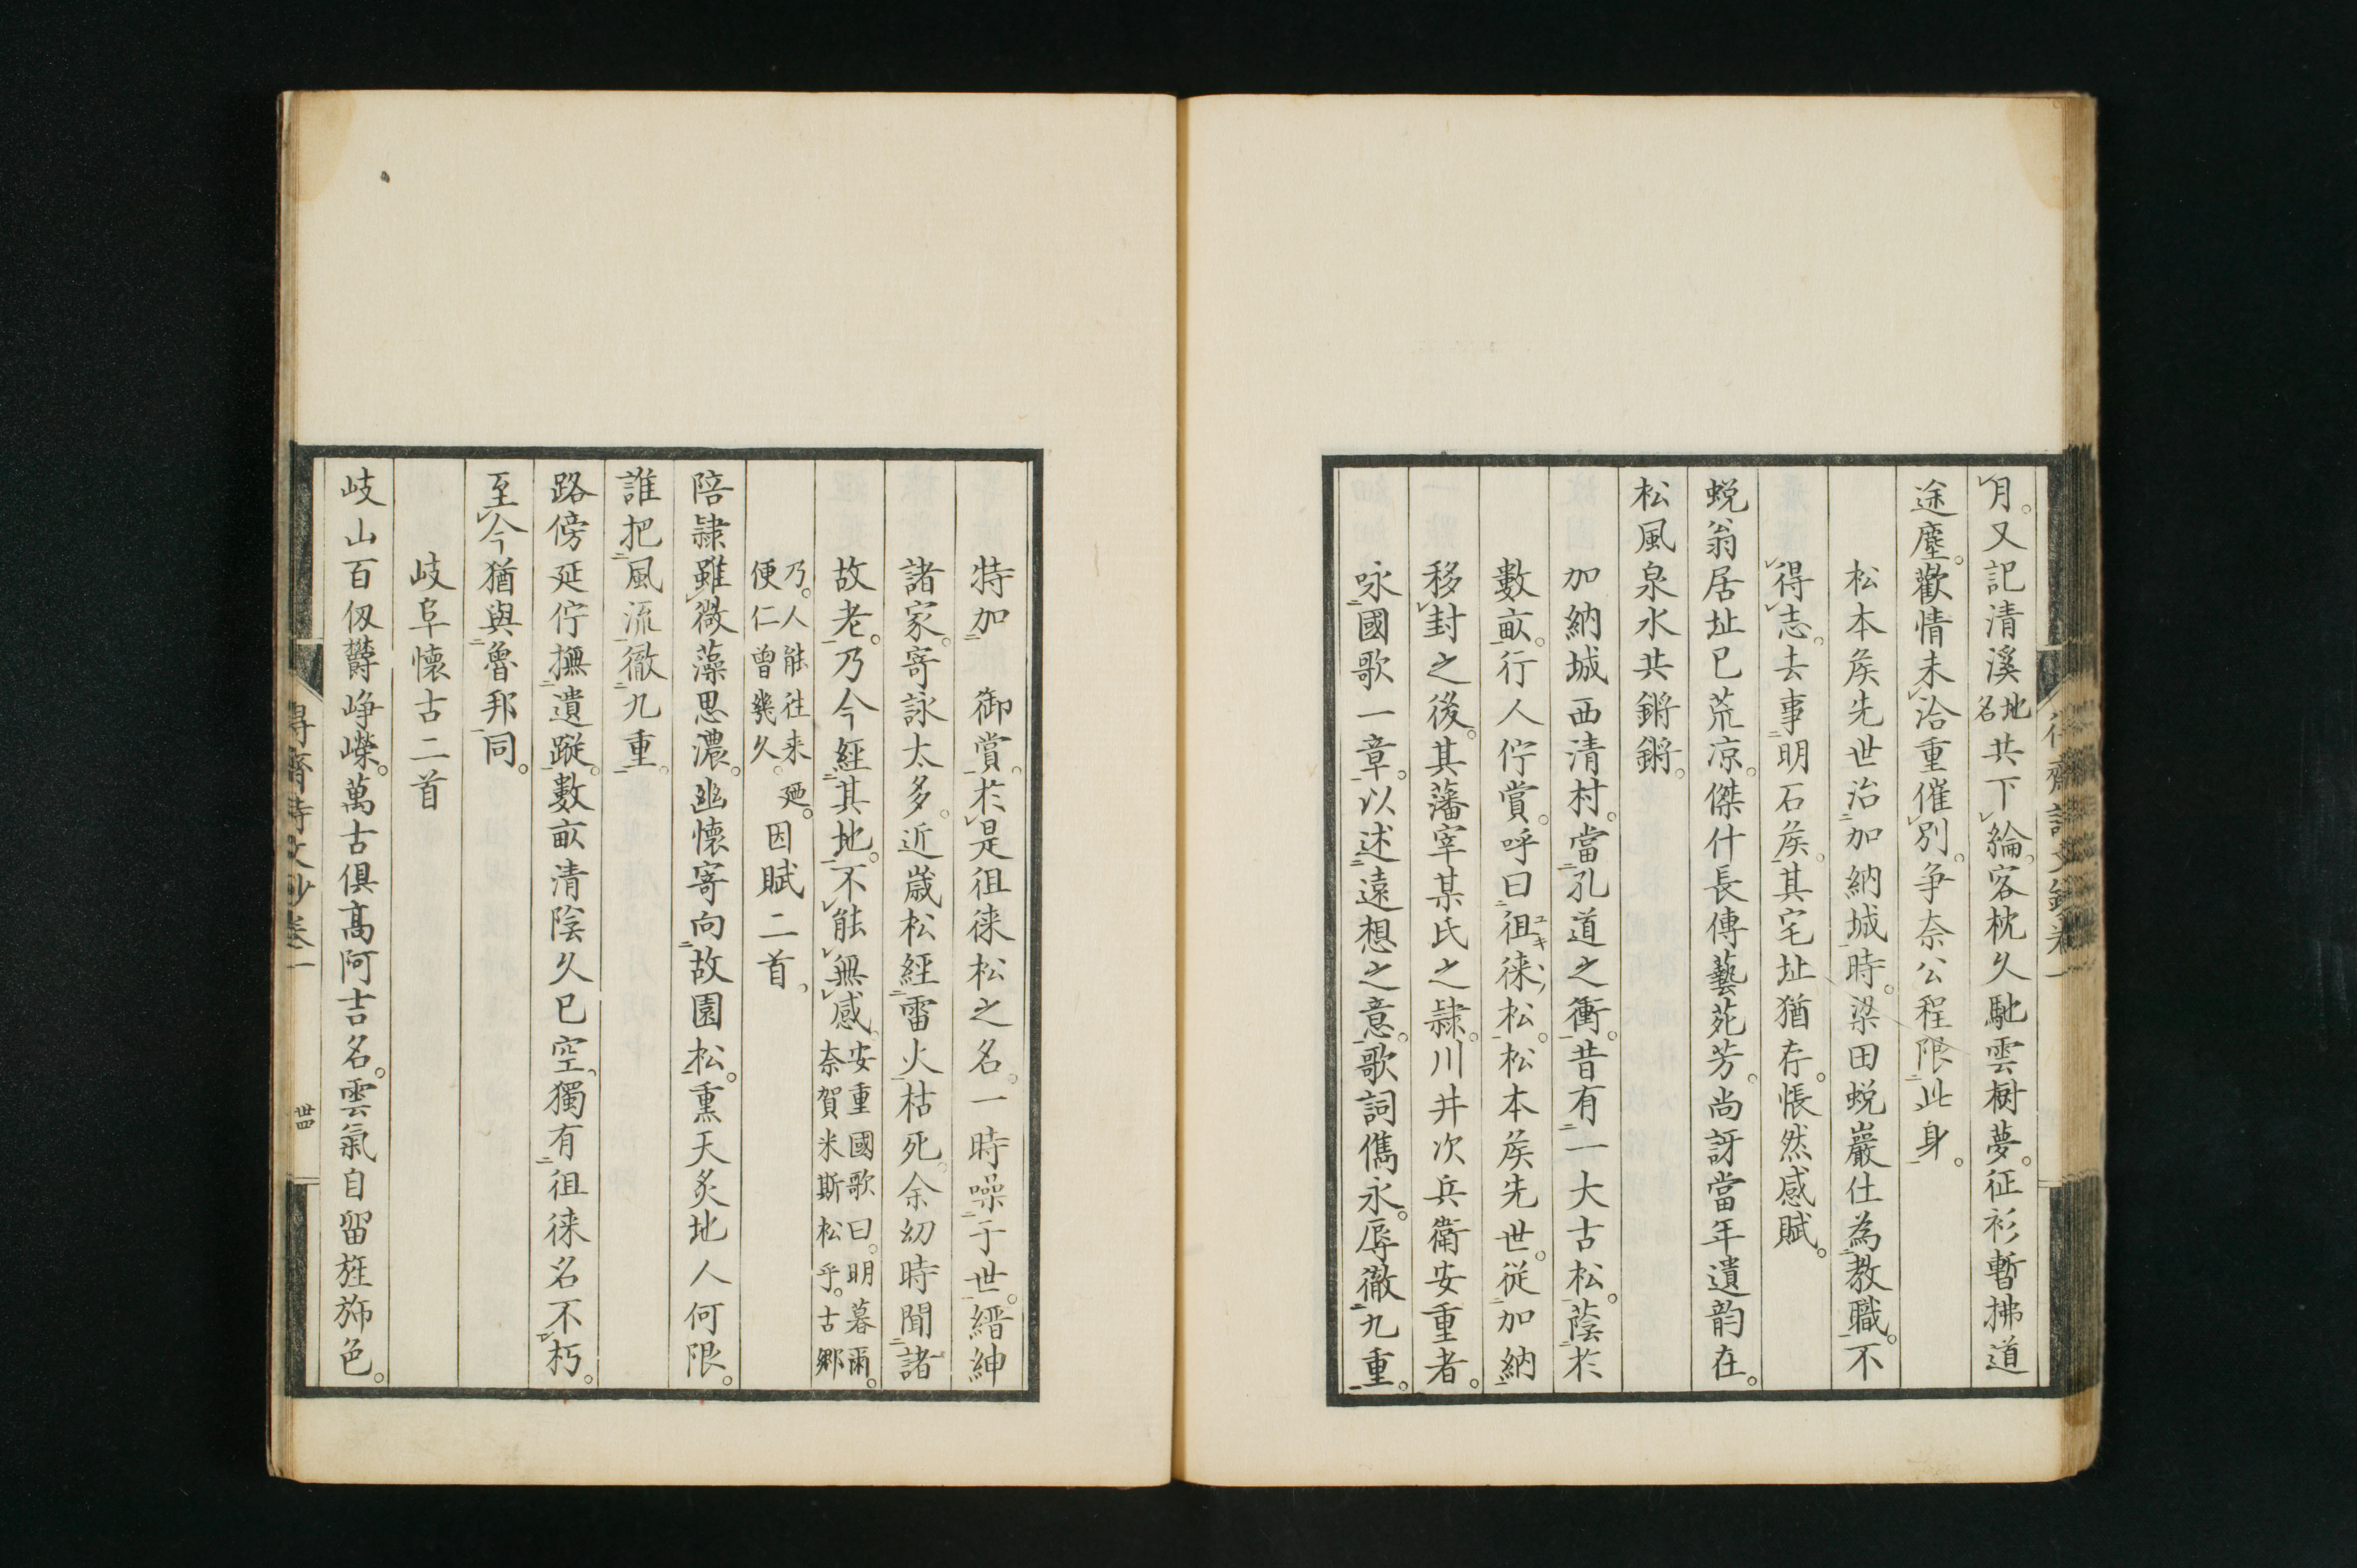 月。又記清溪地名共下綸。客枕久馳雲樹夢。征衫暫拂道
途塵。歡情未洽重催別。爭奈公程限此身。
松本矦先世治加納城時。梁田蛻巖仕為教職。不
得志。去事明石矦。其宅址猶存。悵然感賦。
蛻翁居址已荒凉。傑什長傳藝苑芳。尚訝當年遺韵在。
松風泉水共鏘鏘。
加納城西清村。當孔道之衝。昔有一大古松。蔭於
數畝。行人佇賞。呼曰徂徠松。松本矦先世。從加納
移封之後。其藩宰某氏之隷。川井次兵衛安重者。
咏國歌一章。以述遠想之意。歌詞儁永。辱徹九重。
特加　御賞。於是徂徠松之名。一時噪于世。縉紳
諸家。寄詠太多。近歲松經雷火枯死。余幼時聞諸
故老。乃今經其地。不能無感。安重國歌曰。明暮爾。奈賀米斯松乎。古郷
乃。人能往来廼。便仁曾幾久。因賦二首。
陪隷雖微藻思濃。幽懷寄向故園松。熏天炙地人何限。
誰把風流徹九重。
路傍延佇撫遺蹤。數畝清陰久已空。獨有徂徠名不朽。
至今猶與魯邦同。
岐阜懷古二首
岐山百仭欝崢嶸。萬古俱高阿吉名。雲氣自留旌旆色。
得齋詩文鈔卷一
卅四